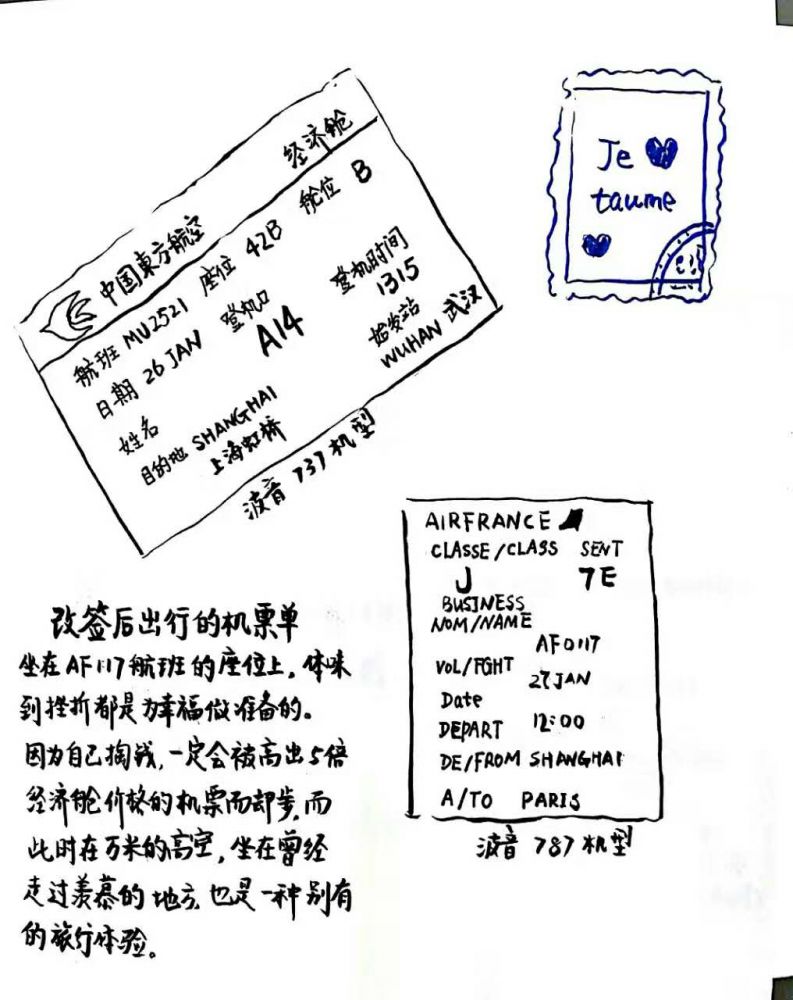 经济舱
中国東方航空
航班 MU2521 座位 42B 舱位 B
日期 26 JAN 登机口 登机时间
A14 1315
姓名 始发站
目的地 SHANGHAI WUHAN 武汉
上海虹桥
波音 737 机型
Je
taume
AIRFRANCE
CLASSE/CLASS SENT
J 7E
BUSINESS
NOM/NAME
AF0117
VOL/FGHT
27JAN
Date
DEPART 12:00
DE/FROM SHANGHAI
A/TO PARIS
波音 787 机型
改签后出行的机票单
坐在AF117航班的座位上，体味
到挫折都是为幸福做准备的。
因为自己掏钱，一定会被高出5倍
经济舱价格的机票而却步，而
此时在万米的高空，坐在曾经
走过羡慕的地方，也是一种别有
的旅行体验。